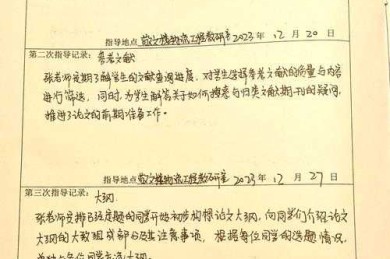 指导地点 敬文楼物流工程教研室 2023年12月20日
第二次指导记录: 参考文献
张老师定期了解学生的文献查阅进度,对学生选择参考文献的质量与内容
进行筛选,同时,为学生解答关于如何搜索与归类文献期刊的疑问,
推进了论文的前期准备工作。
指导地点 敬文楼物流工程教研室 2023年12月27日
第三次指导记录: 大纲
张老师安排已经定题的同学开始初步构思论文大纲,向同学们介绍论文
大纲的大致组成部分及其注意事项,根据每位同学的选题情况,